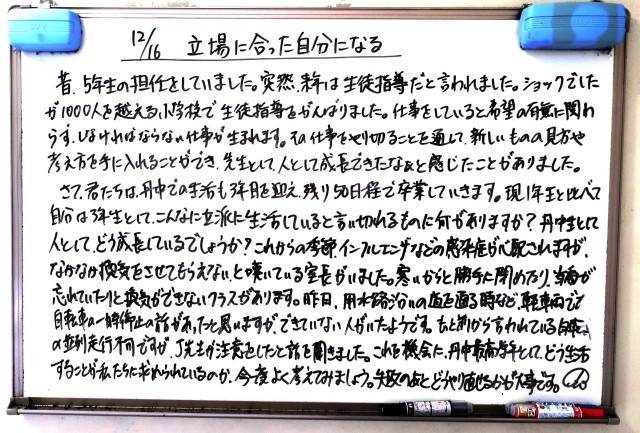 12/16 立場に合った自分になる
昔、5年生の担任をしていました。突然、来年は生徒指導だと言われました。ショックでした
が1000人を越える小学校で生徒指導をがんばりました。仕事をしていると希望の有無に関わ
らず、しなければならない仕事が生まれます。その仕事をやり切ることを通して、新しいものの見方や
考え方を手に入れることができ、先生として、人として成長できたなぁと感じたことがありました。
さて、君たちは、丹中での生活も3年目を迎え、残り50日程で卒業していきます。現1年生と比べて
自分は3年生として、こんなに立派に生活していると言い切れるものは何がありますか？丹中生として
人として、どう成長しているでしょうか？これからの季節、インフルエンザなどの感染症が心配されますが、
なかなか換気をさせてもらえない、と嘆いている室長がいました。寒いからと勝手に閉めたり、当番が
忘れていたりと換気ができないクラスがあります。昨日、用水路沿いの道を通る時など、軽車両です
自転車の一時停止の話があったと思いますが、できていない人がいたようです。もと前から言われている自転車
の並列走行不可ですが、J先生が注意をしたと話を聞きました。これを機会に、丹中最高学年として、どう生活
することが私たちに求められているのか、今一度よく考えてみましょう。失敗のあとどうやり直せるかが大事です。